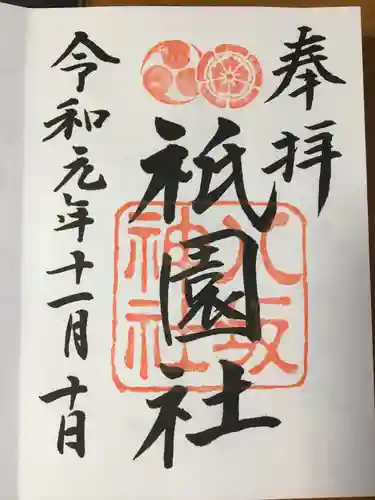 奉拝
祇園社
八坂
神社
令和元年十一月十日